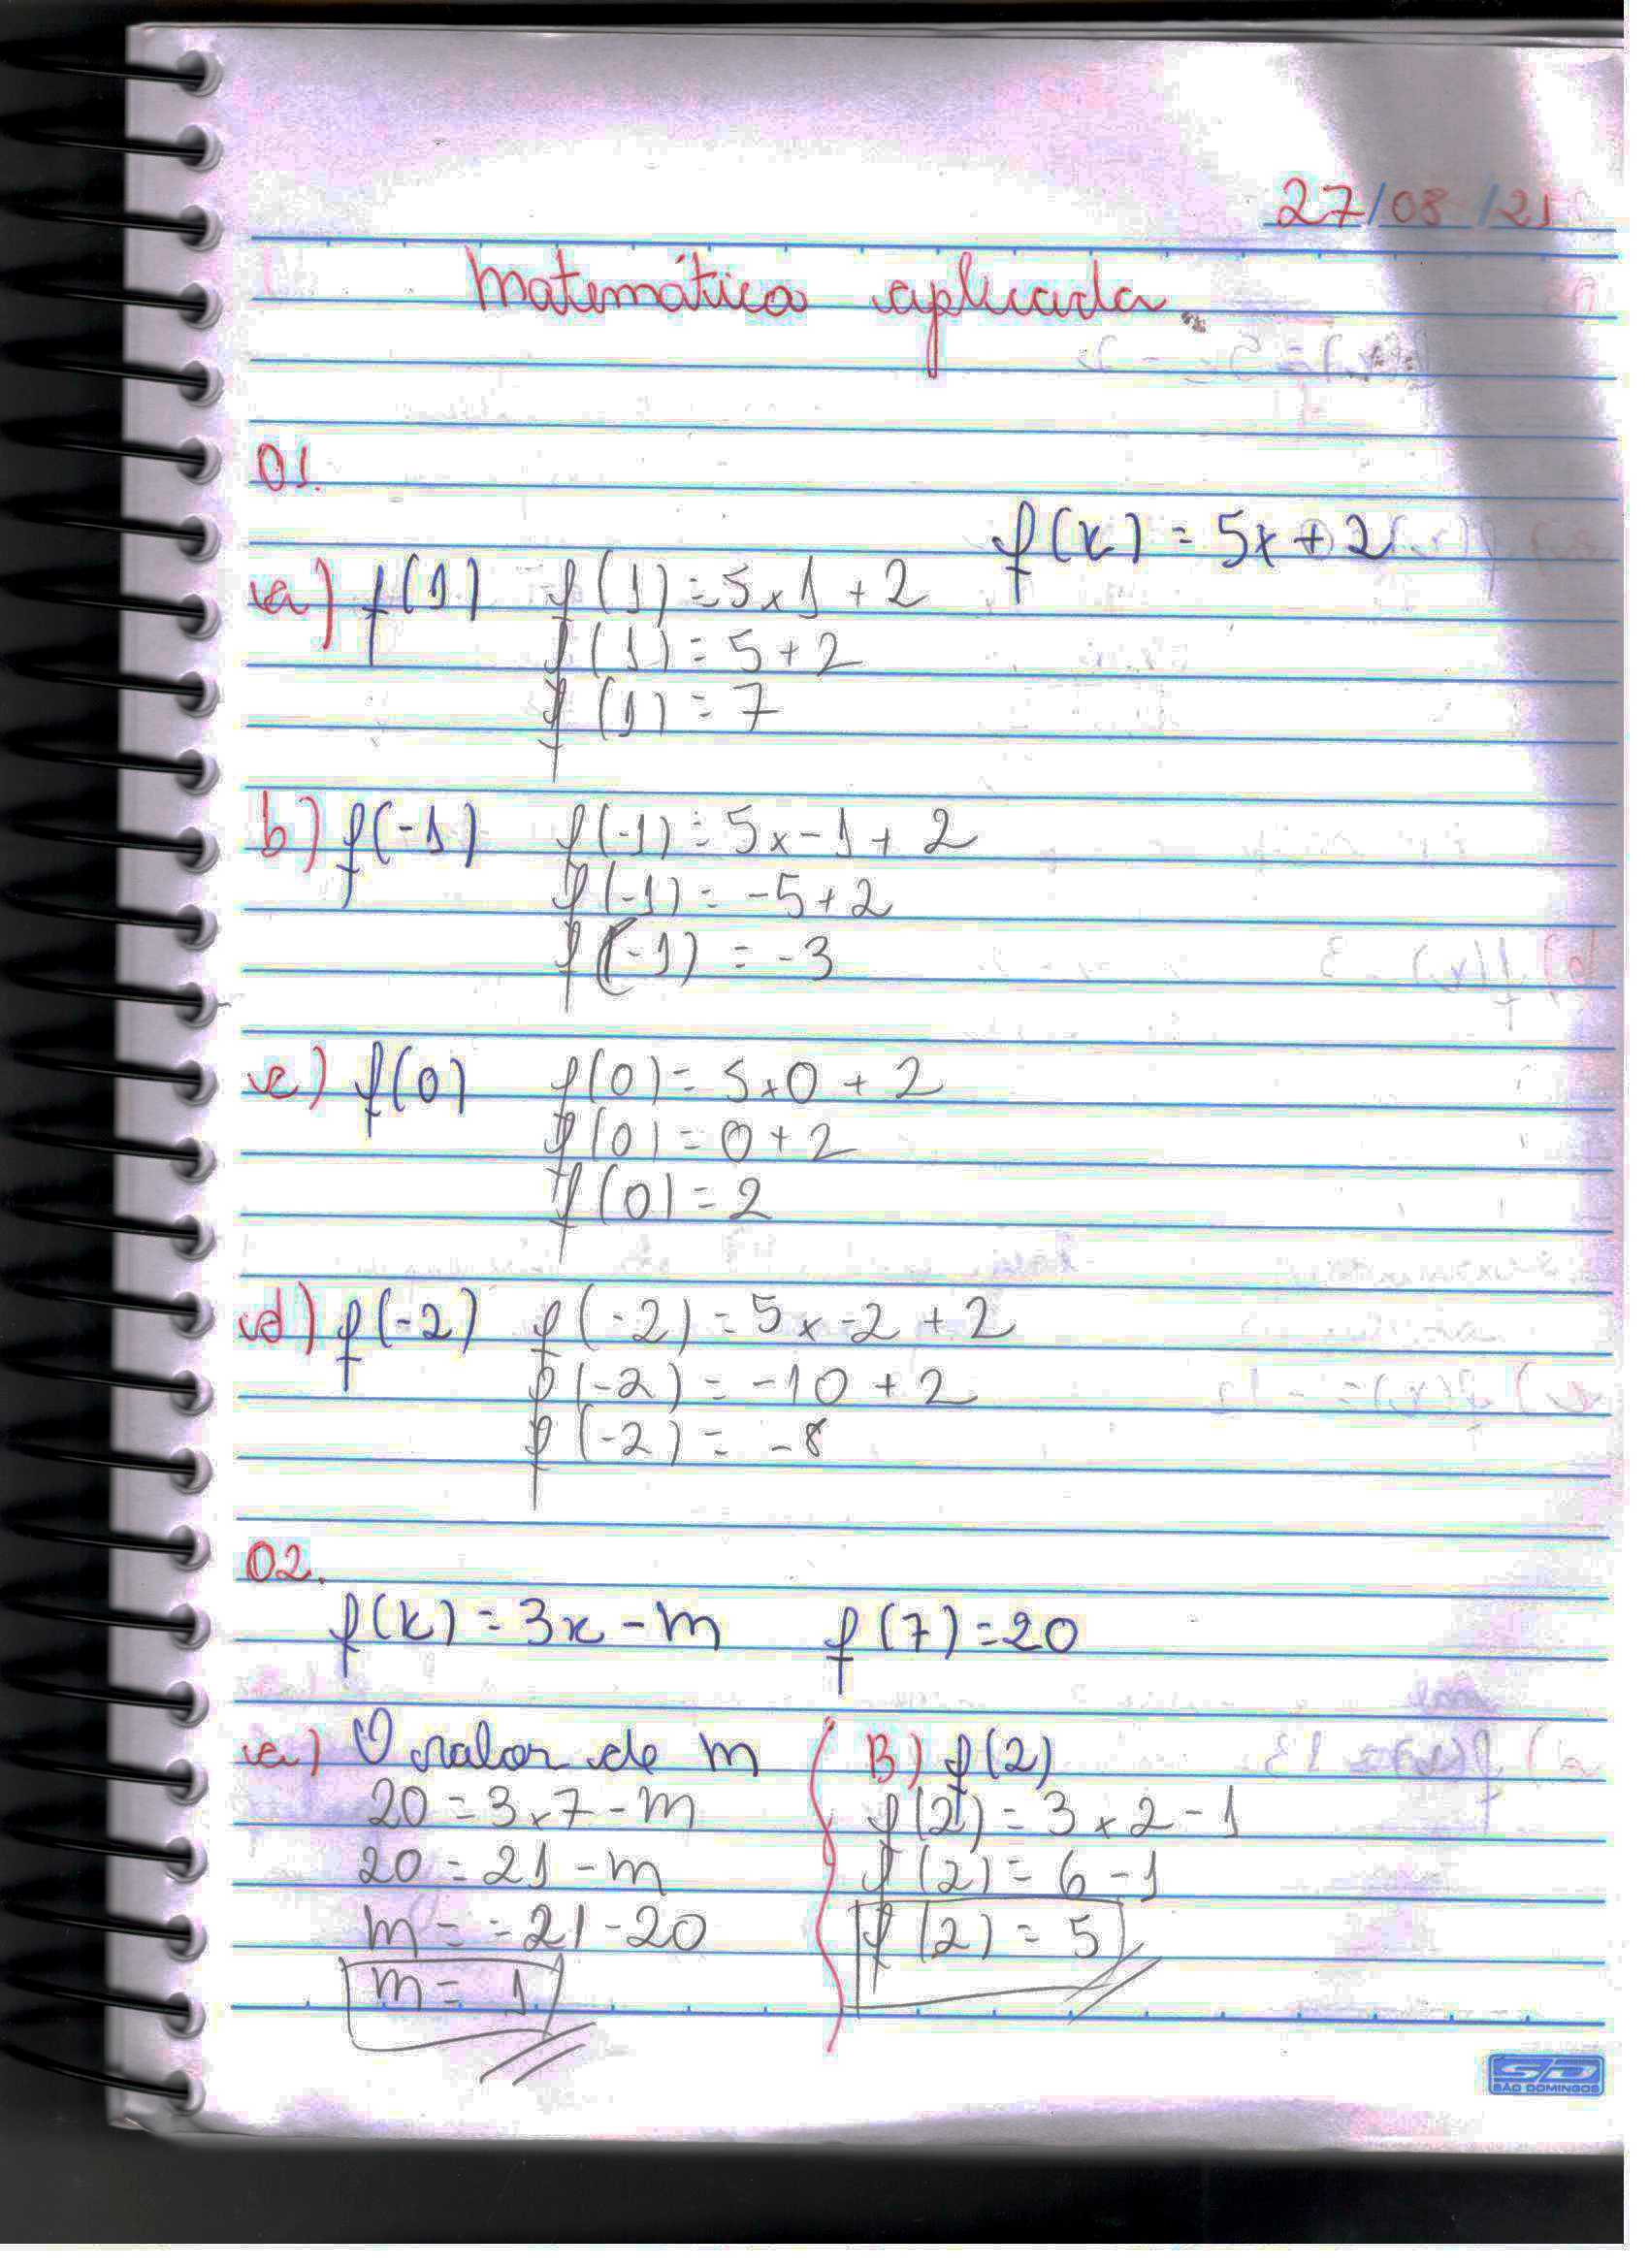 27/08/21
Matemática aplicada
01.
f(x) = 5x + 2
a) f(1) f(1) = 5x1 + 2
f(1) = 5 + 2
f(1) = 7
b) f(-1) f(-1) = 5x-1 + 2
f(-1) = -5 + 2
f(-1) = -3
c) f(0) f(0) = 5x0 + 2
f(0) = 0 + 2
f(0) = 2
d) f(-2) f(-2) = 5x-2 + 2
f(-2) = -10 + 2
f(-2) = -8
02.
f(x) = 3x - m f(7) = 20
a) O valor de m
20 = 3x7 - m
20 = 21 - m
m = -21-20
m = 1
B) f(2)
f(2) = 3x2 - 1
f(2) = 6 - 1
f(2) = 5
SD
SÃO DOMINGOS